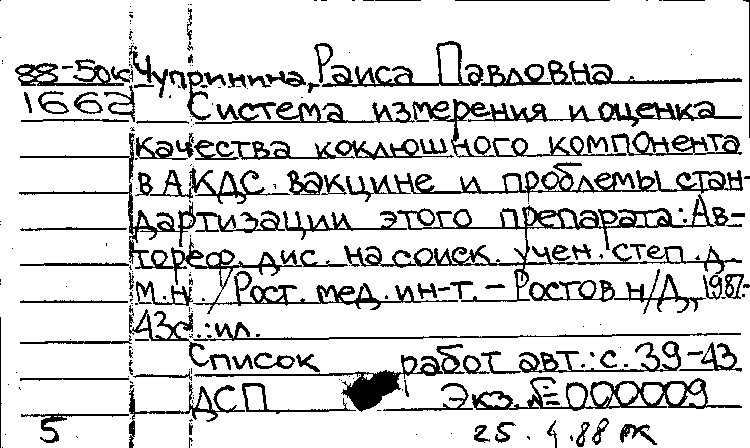 88-50к Чупринина, Раиса Павловна.
1662 Система измерения и оценка
качества коклюшного компонента
в АКДС вакцине и проблемы стан-
дартизации этого препарата: Ав-
тореф. дис. на соиск. учен. степ. д.
м.н. / Рост. мед. ин-т. - Ростов н/Д, 1987.-
43с.:ил.
Список работ авт.: с. 39-43
ДСП Экз. № 000009
5 25.4.88